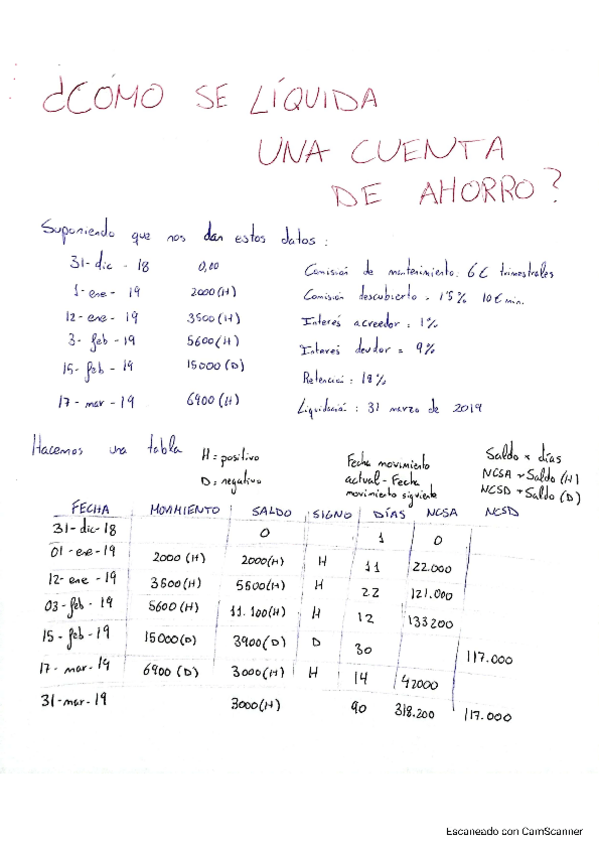 ¿CÓMO SE LÍQUIDA
UNA CUENTA
DE AHORRO?
Suponiendo que nos dan estos datos:
31-dic-18 0,00
1-ene-19 2000(H)
12-ene-19 3500(H)
3-feb-19 5600(H)
15-feb-19 15000(D)
17-mar-19 6900(H)
Comisión de mantenimiento: 6€ trimestrales
Comisión descubierto: 1'5% 10€ min.
Interés acreedor: 1%
Interés deudor = 9%
Retención: 18%
Liquidación: 31 marzo de 2019
Hacemos una tabla
H = positivo
D = negativo
Fecha movimiento
actual - Fecha
movimiento siguiente
Saldo x días
NCSA → Saldo (H)
NCSD → Saldo (D)
FECHA MOVIMIENTO SALDO SIGNO DÍAS NCSA NCSD
31-dic-18 0 1 0
01-ene-19 2000(H) 2000(H) H 11 22.000
12-ene-19 3500(H) 5500(H) H 22 121.000
03-feb-19 5600(H) 11.100(H) H 12 133200
15-feb-19 15000(D) 3900(D) D 30 117.000
17-mar-19 6900(D) 3000(H) H 14 42000
31-mar-19 3000(H) 90 318.200 117.000
Escaneado con CamScanner